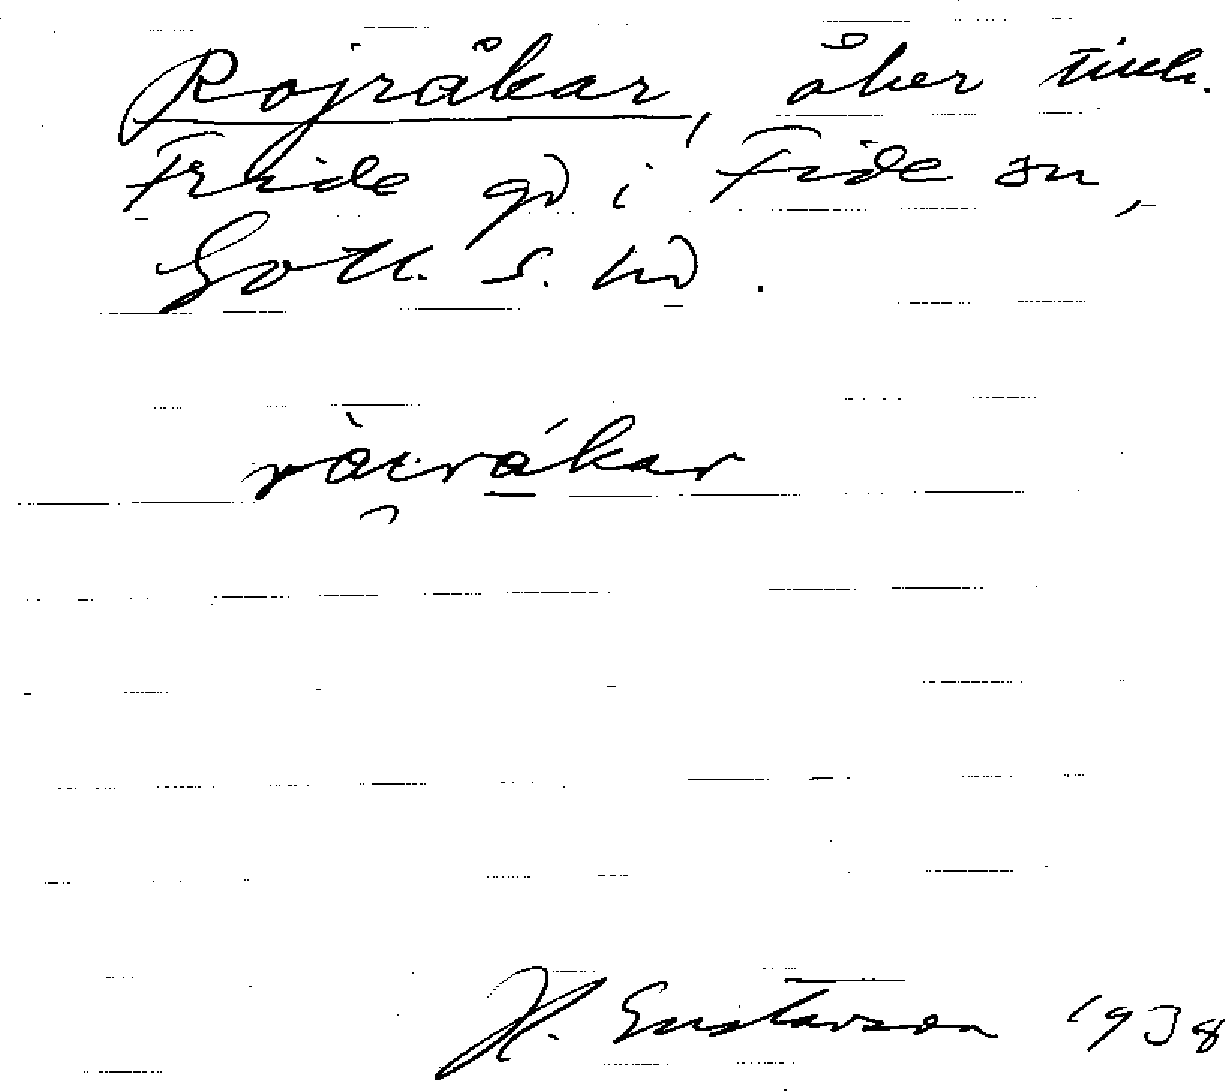 Rojråkar, åker tillh.
Fride gd i Fide sn,
Gotl. s. hd.
ròirákar
H. Gustavson 1938